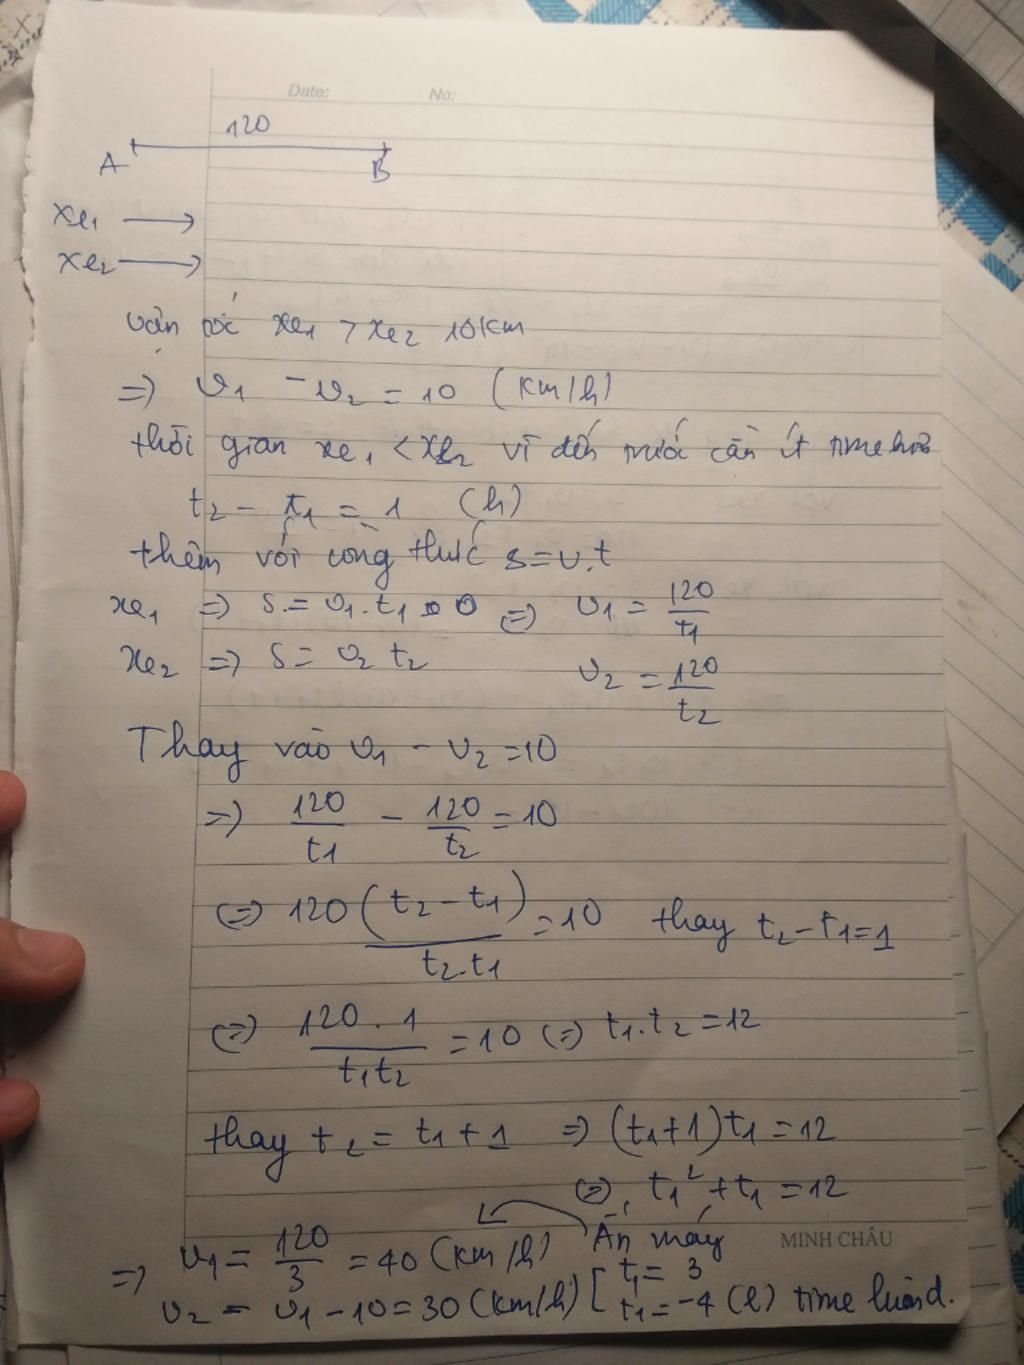 Date: No:
120
A B
xe1 →
xe2 →
vận tốc xe1 > xe2 10km
=> v1 - v2 = 10 (km/h)
thời gian xe1 < xe2 vì đến trước cần ít time hơn
t2 - t1 = 1 (h)
thêm với công thức s=v.t
xe1 => s = v1.t1 <=> v1 = 120/t1
xe2 => s = v2 t2 v2 = 120/t2
Thay vào v1 - v2 = 10
=> 120/t1 - 120/t2 = 10
(=) 120(t2-t1)/t2.t1 = 10 thay t2-t1=1
(=) 120.1/t1t2 = 10 (=) t1.t2 = 12
thay t2 = t1+1 => (t1+1)t1 = 12
(=) t1² + t1 = 12
Ấn máy MINH CHÂU
=> v1 = 120/3 = 40 (km/h) [ t1 = 3
v2 = v1 - 10 = 30 (km/h) t1 = -4 (l) time luôn d.